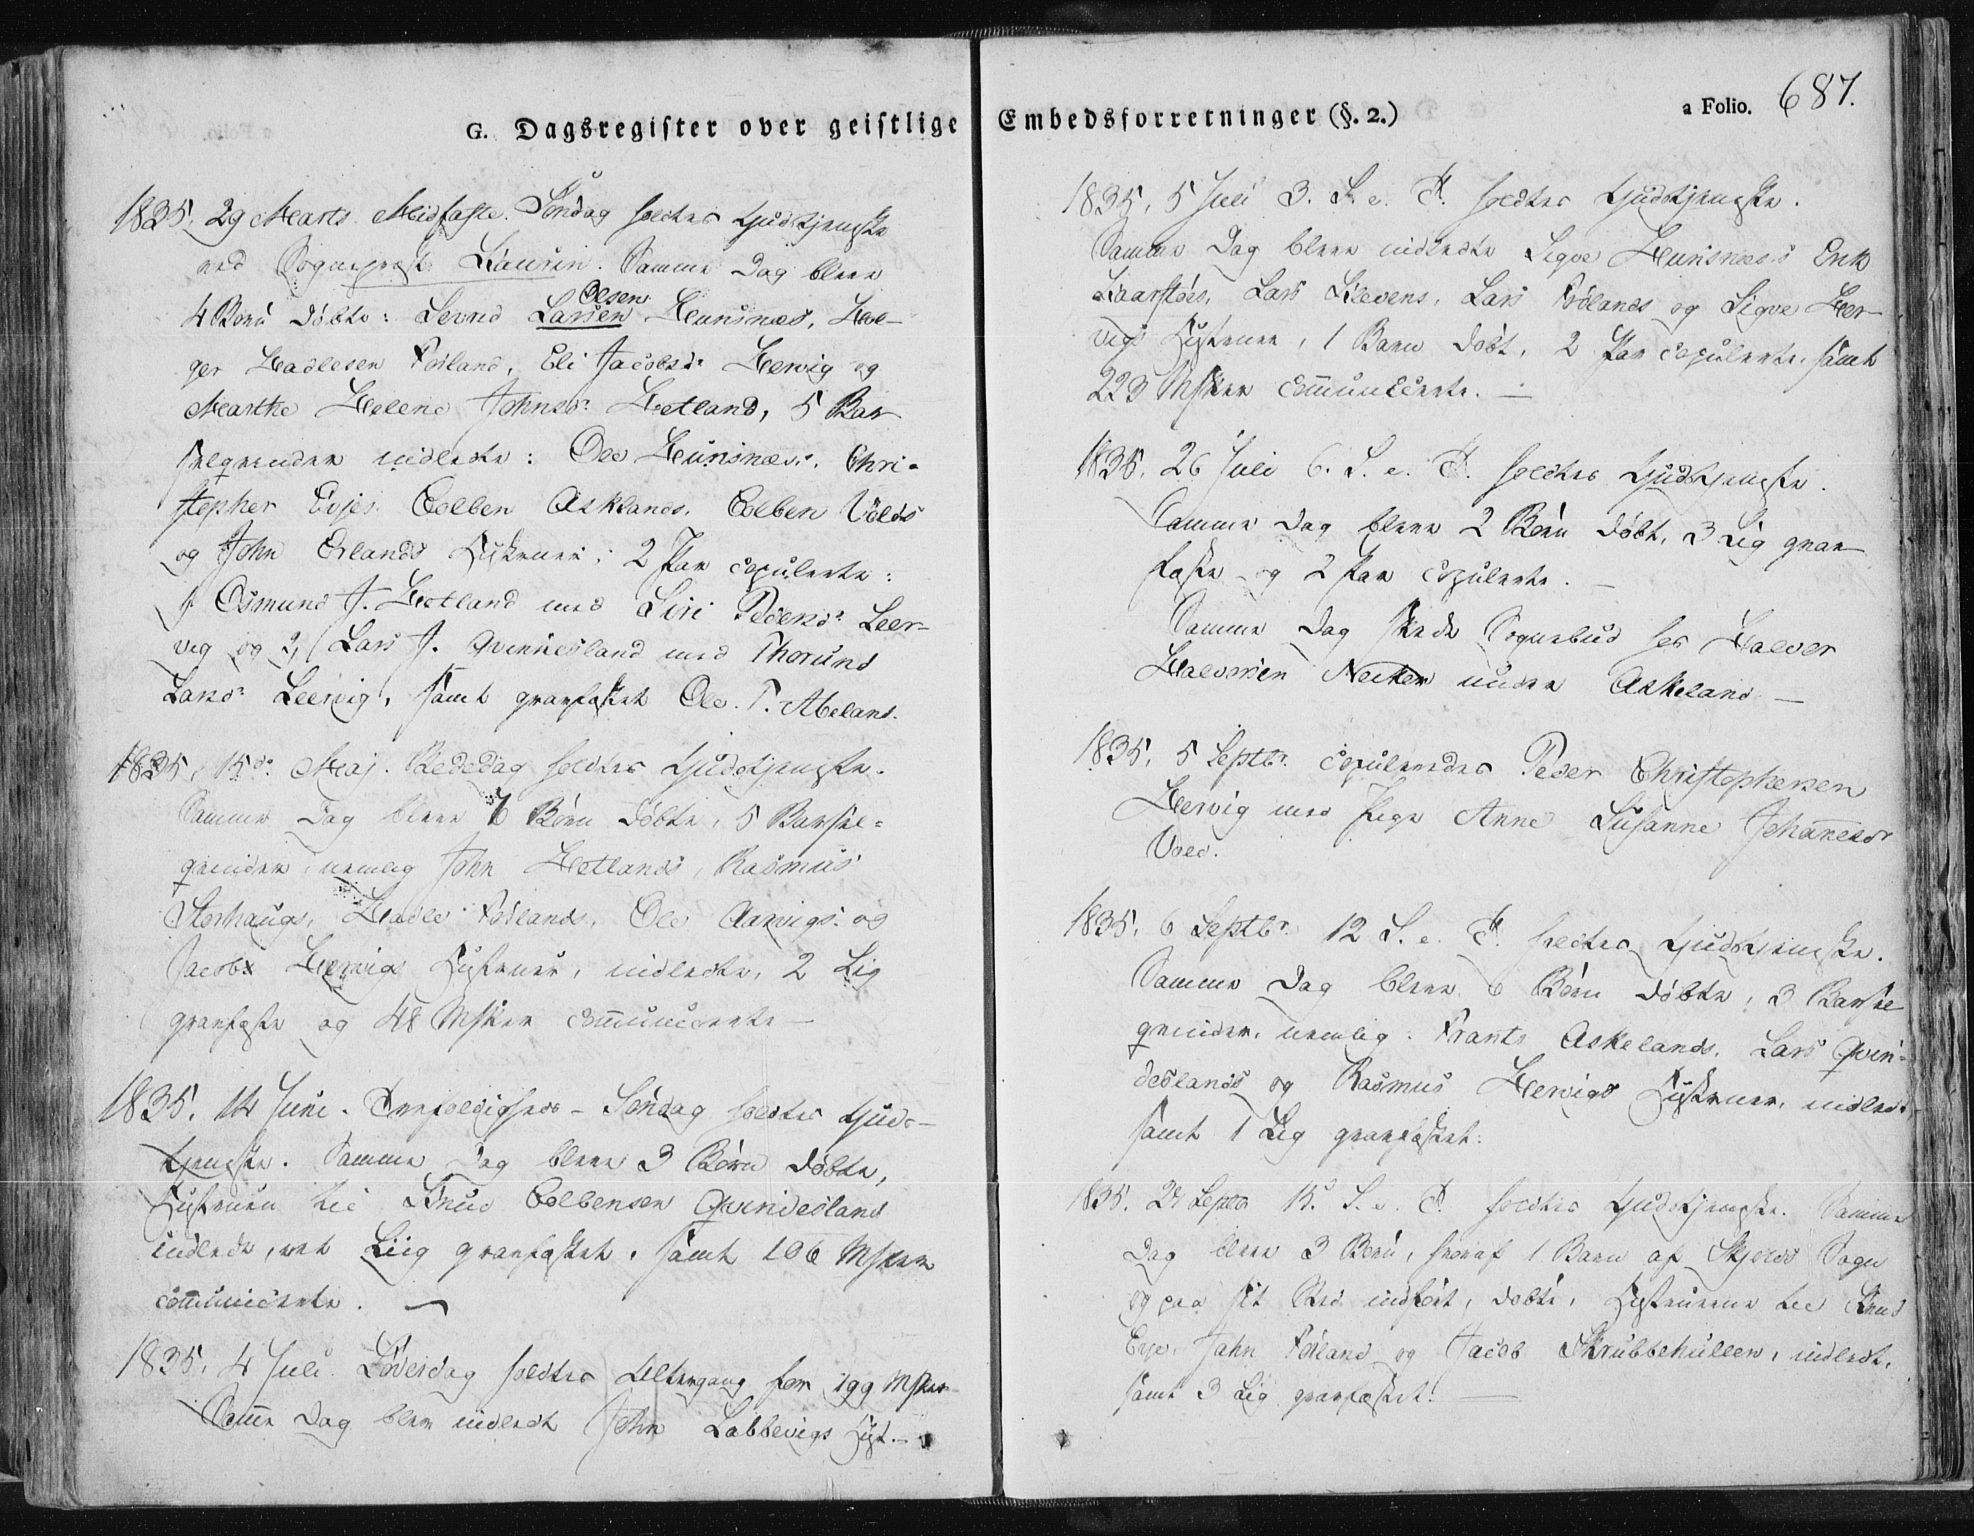 G. Dagsregister over geistlige Embedsforretninger (§. 2.)
a Folio. 687.
1835, 29 Marts Midfaste Søndag holdtes Gudstjeneste
ved Sognepræst Laurin. Samme Dag bleve
4 Børn døbte: Sevrid Larsen Olsen Hunsnæs, Hol-
ger Hadlesen Fosland, Eli Jacobsdr Hervig og
Marthe Helene Johnsdr Hetland, 5 Bar-
selqvinder indledte: Ole Hunsnæs, Chri-
stopher Evjes, Colben Asklands, Colben Volds
og John Erlands Hustruer; 2 Par copulerte:
1, Osmund J. Hetland med Siri Pedersdr Leer-
vig og 2, Lars J. Qvinnesland med Thorund
Larsdr Leervig, samt gravfæstet Ole T. Abeland.
1835, 15de Maj. Bededag holdtes Gudstjeneste.
Samme Dag bleve 6 Børn døbte, 5 Barsel-
qvinder nemlig John Hetlands, Rasmus
Storhaugs, Hadle Foslands, Ole Aarvigs og
Jacob Hervigs Hustruer, indledte, 2 Lig
gravfæste og 48 Msker communicerte —
1835. 14 Juni. Trefoldigheds-Søndag holdtes Guds-
tjeneste. Samme Dag bleve 3 Børn døbte,
Hustruen til Knud Colbensen Qvindesland
indledt, et Liig gravfæstet, samt 106 Msker
communicerte. —
1835, 4 Juli Løverdag holdtes Altergang for 199 Msker
Same Dag blev indledt John Labbevigs Hust.
1835, 5 Juli 3. S. e. T. holdtes Gudstjeneste.
Samme Dag bleve indledte Sigve Hunsnæs's Erik
Kaarstøes, Lars Klevens, Lars Foslands og Sigve Her-
vigs Hustruer, 1 Barn døbt, 2 Par copulerte, samt
223 Msker communicerte. —
1835, 26 Juli 6. S. e. T. holdtes Gudstjeneste.
Samme Dag bleve 2 Børn døbt, 3 Lig grav-
fæste og 2 Par copulerte. —
Samme Dag skede Sognebud hos Halvor
Halvorsen under Askeland —
1835, 5 Septbr. copuleredes Peder Christophersen
Hervig med Pige Anne Susanne Johannesdr
Vold.
1835, 6 Septbr. 12 S. e. T. holdtes Gudstjeneste.
Samme Dag bleve 6 Børn døbte, 3 Barsel-
qvinder, nemlig: Frants Askelands, Lars Qvin-
deslands og Rasmus Hervigs Hustruer, indledt,
samt 1 Lig gravfæstet:
1835. 27 Septbr 15. S. e. T. holdtes Gudstjeneste. Samme
Dag bleve 3 Børn, hvoraf 1 Barn af Skjolds Sogn
og paa sit Sted indført, døbte, Hustruerne til Knud
Evje, John Fosland og Jacob Skrubbehullen, indledt,
samt 3 Lig gravfæstet. —